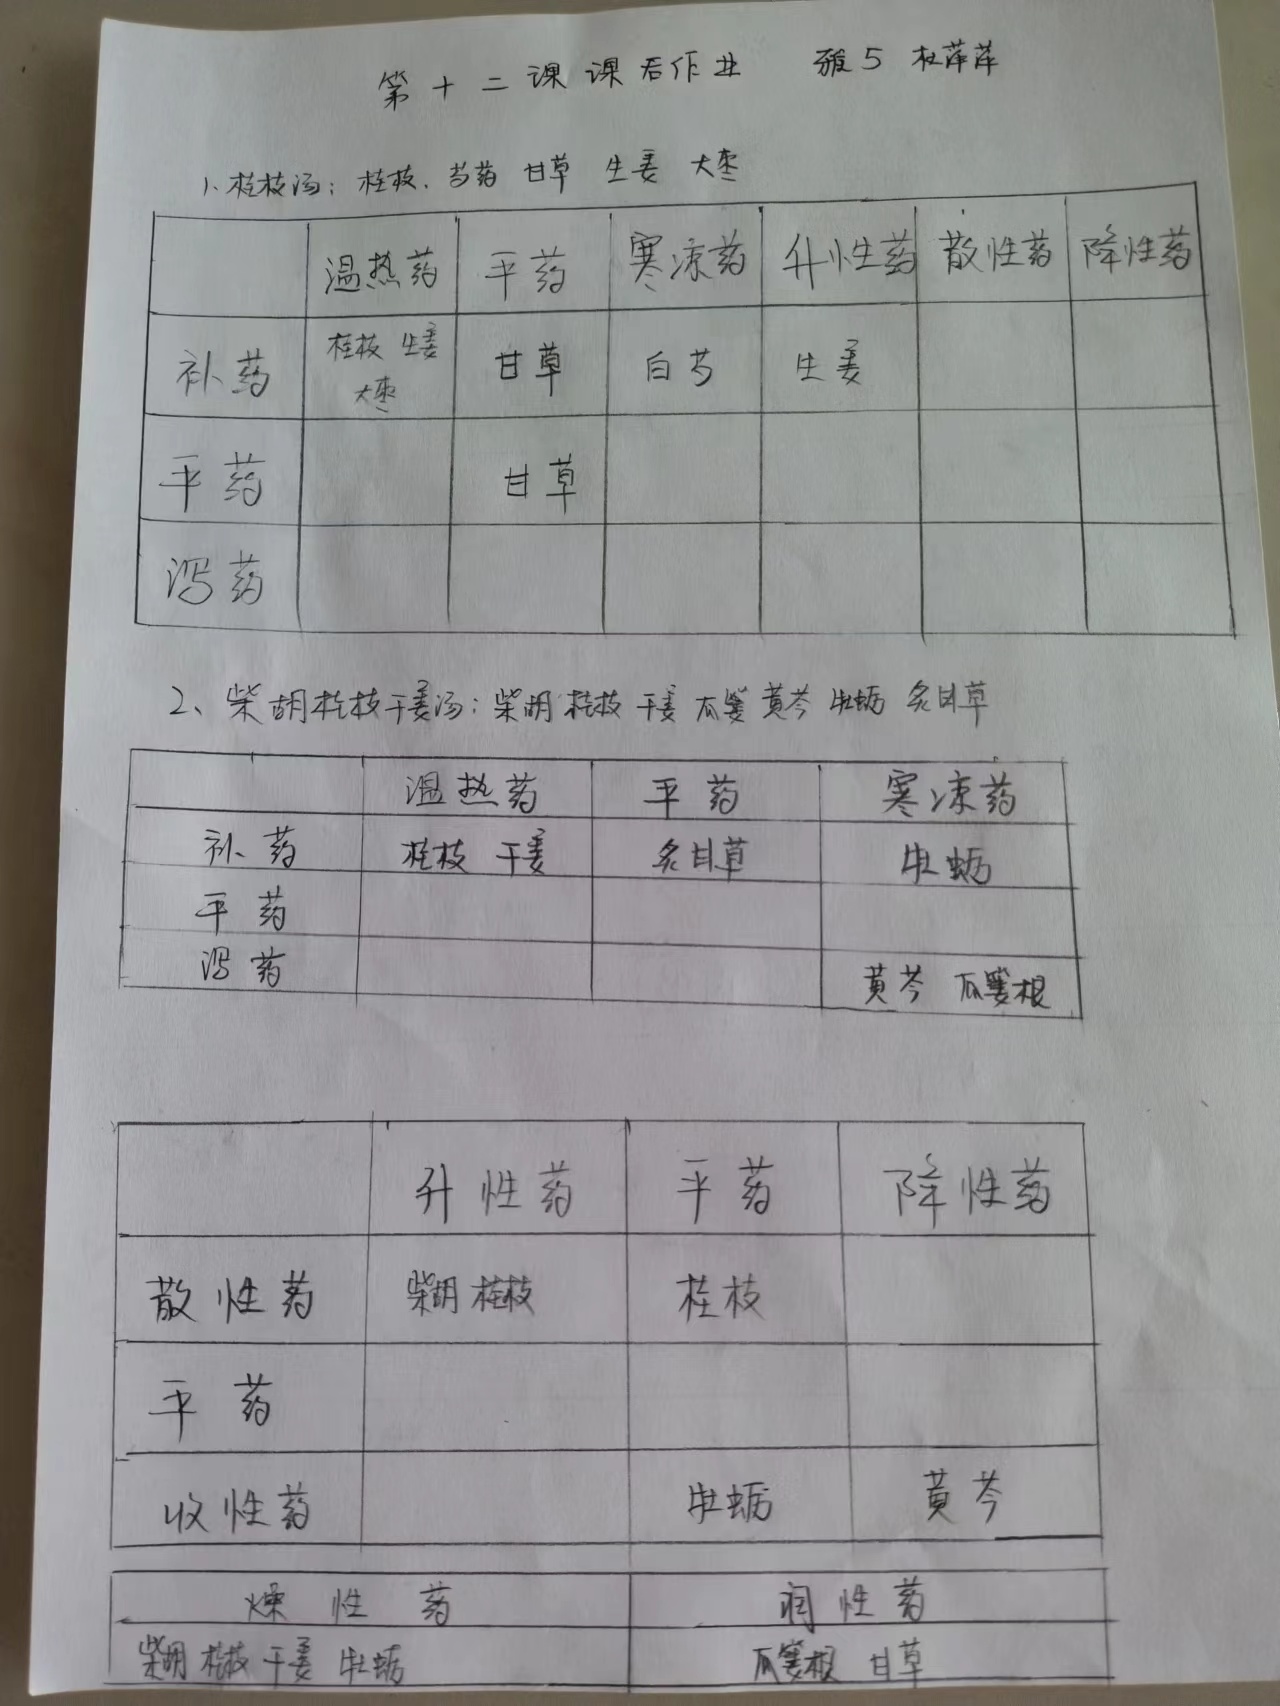 第十二课课后作业 班5 杜萍萍
1、桂枝汤：桂枝、芍药 甘草 生姜 大枣
温热药 平药 寒凉药 升性药 散性药 降性药
补药 桂枝 生姜 大枣 甘草 白芍 生姜
平药 甘草
泻药
2、柴胡桂枝干姜汤：柴胡 桂枝 干姜 瓜蒌 黄芩 牡蛎 炙甘草
温热药 平药 寒凉药
补药 桂枝 干姜 炙甘草 牡蛎
平药
泻药 黄芩 瓜蒌根
升性药 平药 降性药
散性药 柴胡 桂枝 桂枝
平药
收性药 牡蛎 黄芩
燥性药 润性药
柴胡 桂枝 干姜 牡蛎 瓜蒌根 甘草